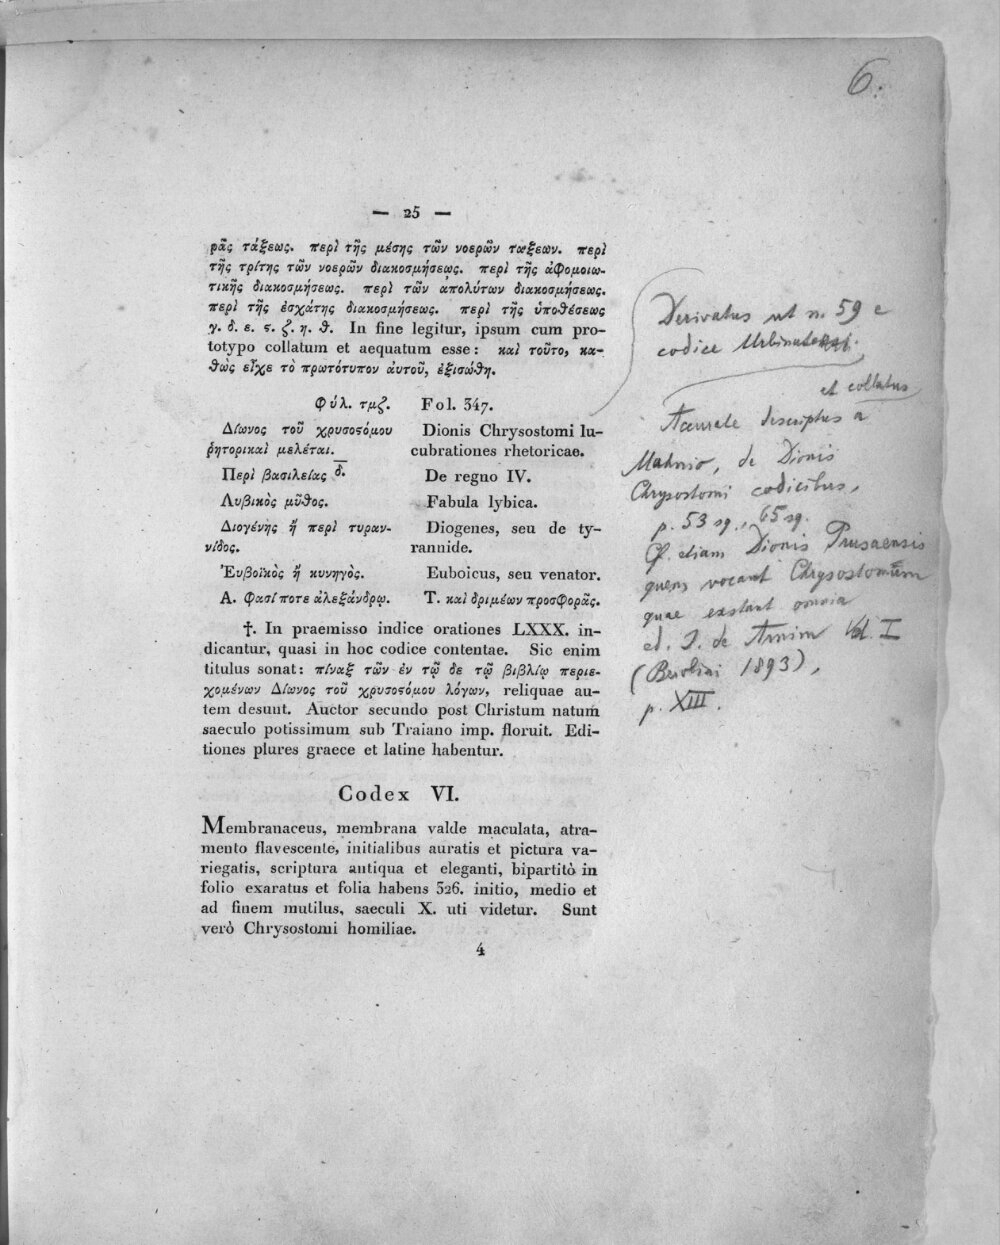 6.
— 25 —
ρᾶς τάξεως. περὶ τῆς μέσης τῶν νοερῶν τάξεων. περὶ
τῆς τρίτης τῶν νοερῶν διακοσμήσεως. περὶ τῆς ἀφομοιω-
τικῆς διακοσμήσεως. περὶ τῶν ἀπολύτων διακοσμήσεως.
περὶ τῆς ἐσχάτης διακοσμήσεως. περὶ τῆς ὑποθέσεως
γ. δ. ε. ϛ. ζ. η. θ. In fine legitur, ipsum cum pro-
totypo collatum et aequatum esse: καὶ τοῦτο, κα-
θὼς εἶχε τὸ πρωτότυπον αὐτοῦ, ἐξισώθη.
Φύλ. τμζ. Fol. 347.
Δίωνος τοῦ χρυσοϛόμου Dionis Chrysostomi lu-
ῥητορικαὶ μελέται. cubrationes rhetoricae.
Περὶ βασιλείας δ. De regno IV.
Λυβικὸς μῦθος. Fabula lybica.
Διογένης ἢ περὶ τυραν- Diogenes, seu de ty-
νίδος. rannide.
Ἐυβοϊκὸς ἢ κυνηγός. Euboicus, seu venator.
Α. Φασί ποτε ἀλεξάνδρῳ. Τ. καὶ δριμέων προσφορᾶς.
†. In praemisso indice orationes LXXX. in-
dicantur, quasi in hoc codice contentae. Sic enim
titulus sonat: πίναξ τῶν ἐν τῷ δε τῷ βιβλίῳ περιε-
χομένων Δίωνος τοῦ χρυσοϛόμου λόγων, reliquae au-
tem desunt. Auctor secundo post Christum natum
saeculo potissimum sub Traiano imp. floruit. Edi-
tiones plures graece et latine habentur.
Codex VI.
Membranaceus, membrana valde maculata, atra-
mento flavescente, initialibus auratis et pictura va-
riegatis, scriptura antiqua et eleganti, bipartitò in
folio exaratus et folia habens 326. initio, medio et
ad finem mutilus, saeculi X. uti videtur. Sunt
verò Chrysostomi homiliae.
4
Derivatus ut n. 59 e
codice Urbinate
et collatus
Accurate descriptus a
Mahnio, de Dionis
Chrysostomi codicibus,
p. 53 sq., 65 sq.
Cf. etiam Dionis Prusaensis
quem vocant Chrysostomum
quae exstant omnia
ed. J. de Arnim Vol. I
(Berolini 1893),
p. XIII.